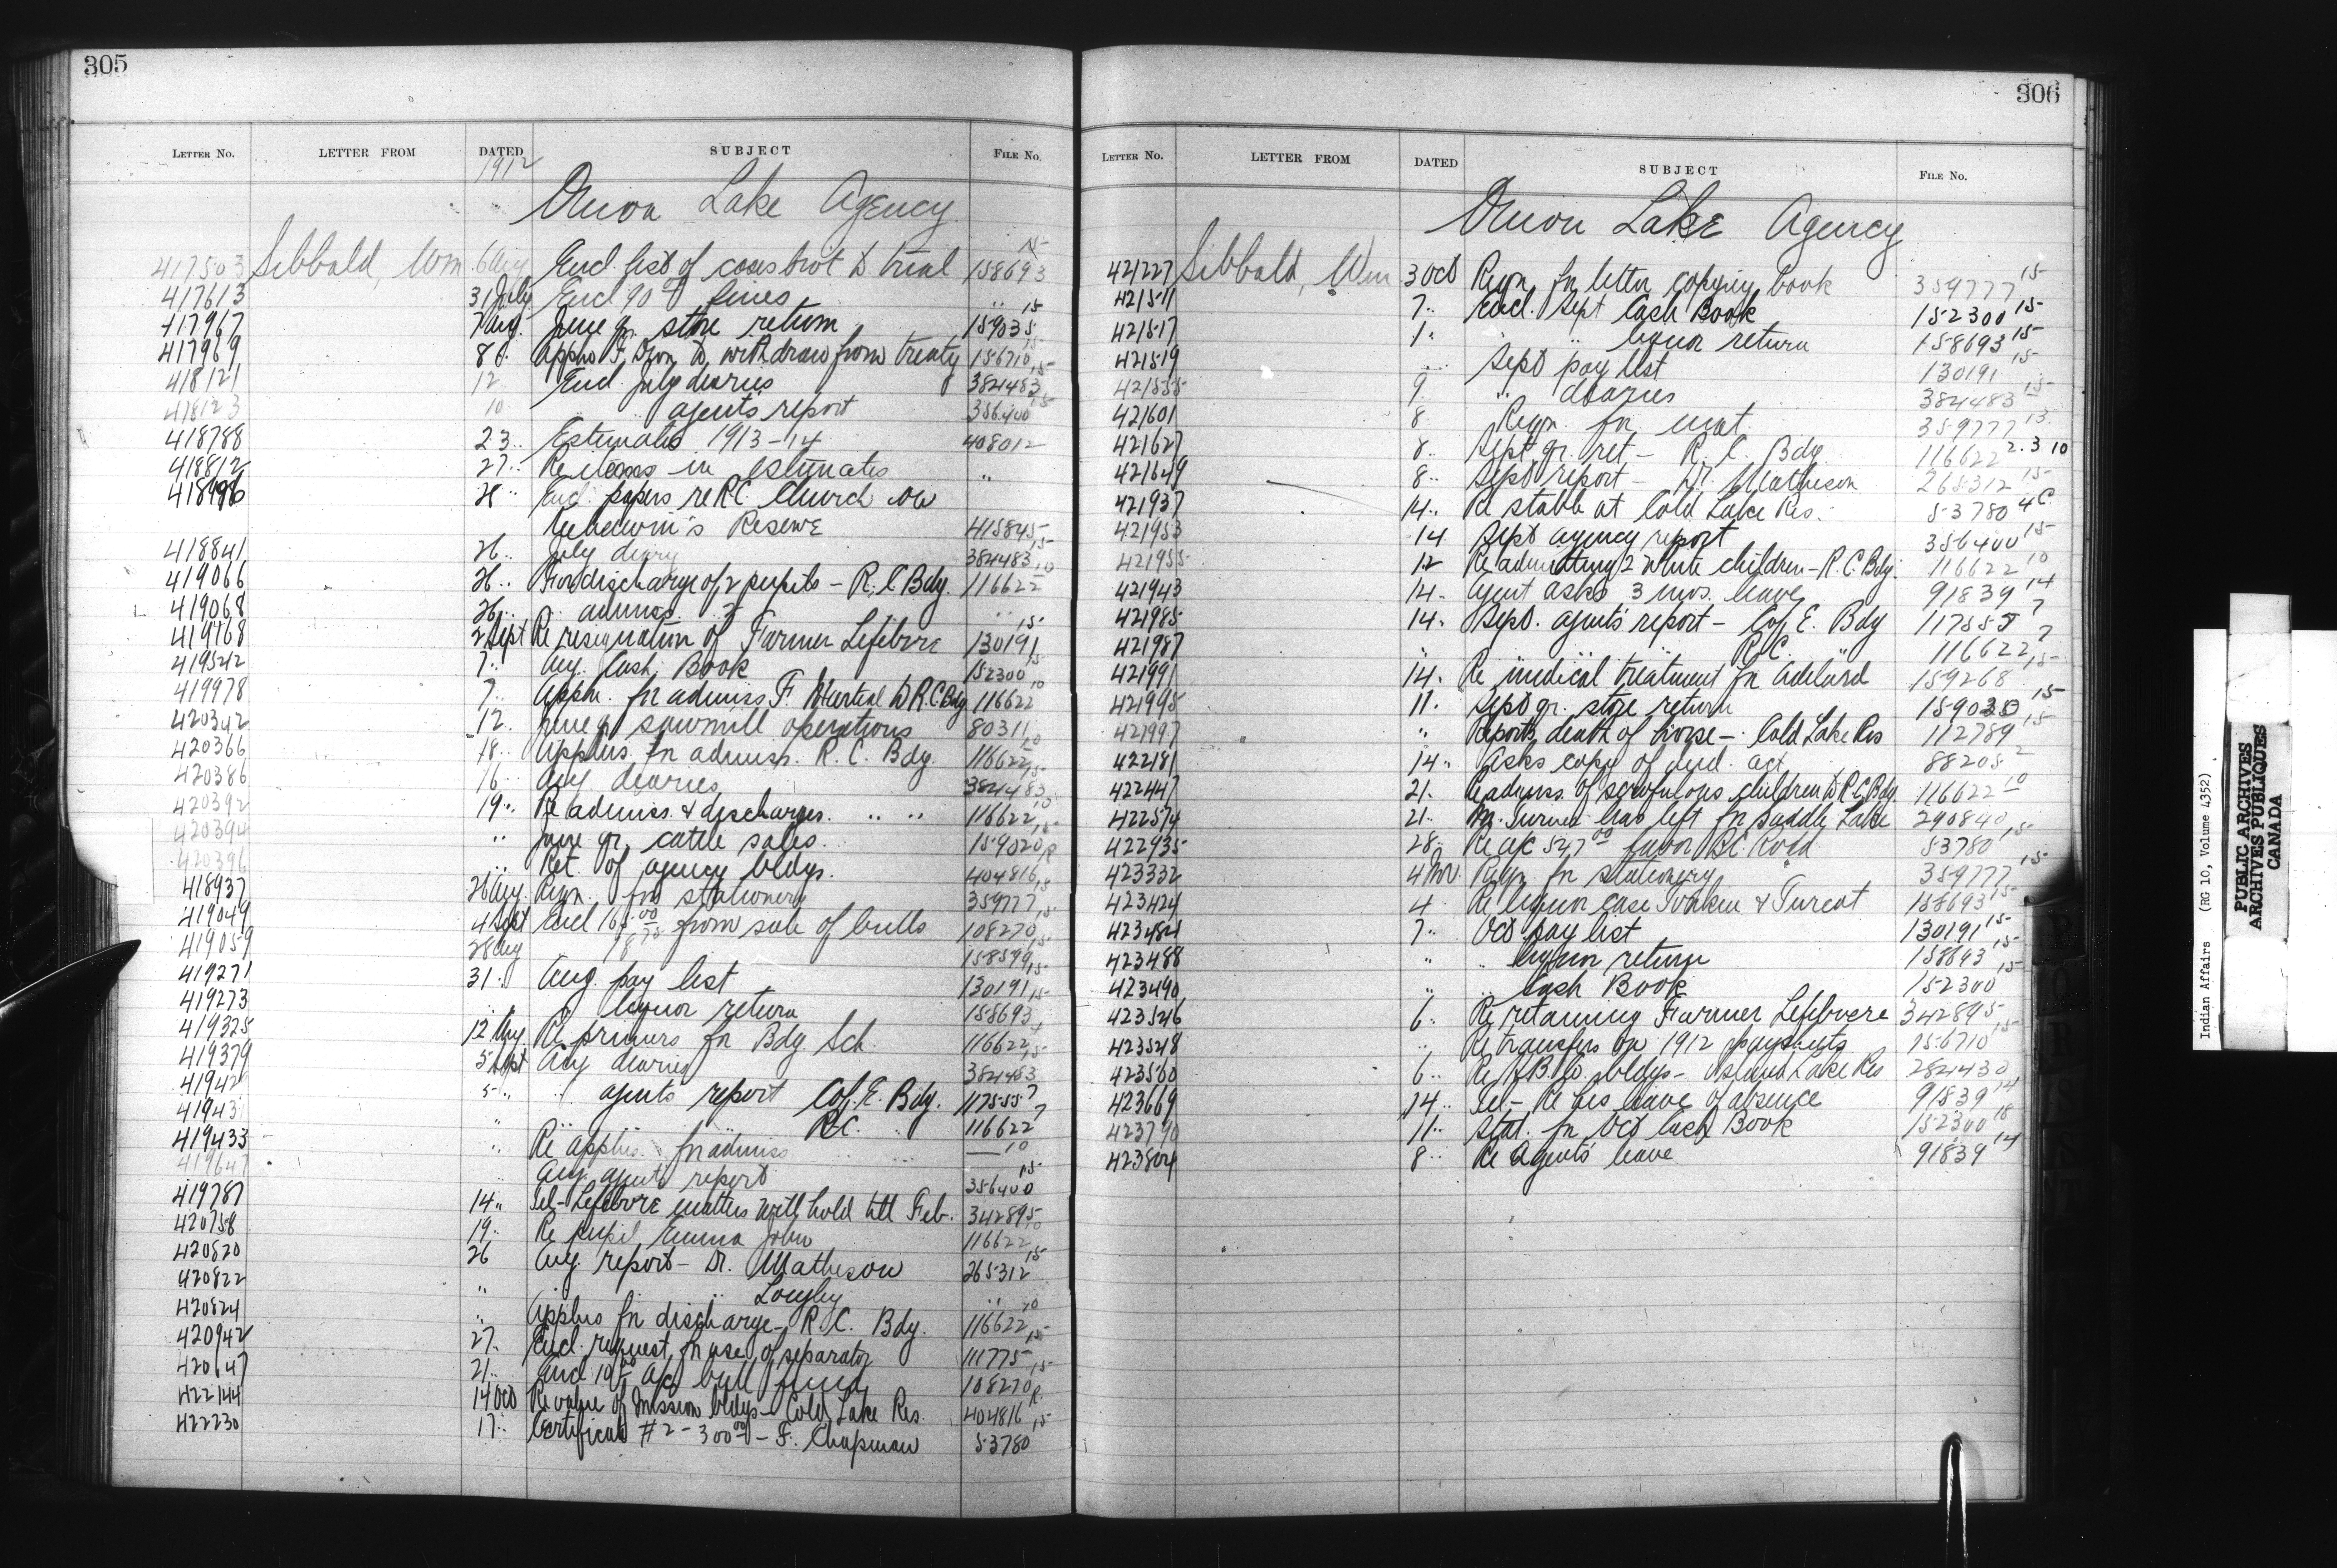 305
LETTER NO. LETTER FROM DATED SUBJECT FILE NO.
1912
Onion Lake Agency
417503 Sibbald, Wm 6 Aug Encl. list of cases brot to trial 158693 15
417613 31 July Encl 90 00 fines " 15
417967 7 Aug. June qr. store return 159035
417969 8 " to withdraw from treaty 156710 15
418121 12 Encl. July diaries 384483 15
418123 10 " " agents report 356400 15
418788 23 " Estimates 1913-14 408012
418812 27 " Re items in estimates "
28 " Encl. papers re R.C. Church on
Reserve 415845 15
418841 26 " July diary 384483 10
419066 26 " For discharge of 2 pupils - R.C Bdg. 116622
419068 26 " " admiss. " " 15
419168 2 Sept Re resignation of Farmer Lefebvre 130191
419542 7 " Aug. Cash Book 152300 15
419978 7 " Appln. for admiss F. Martial to R.C. Bdg 116622 10
420342 12 " June qr sawmill operations 80311
420366 18 " Applns. for admiss. R.C. Bdg. 116622 15
420386 16 " Aug diaries 384483
420392 19 " Re admiss. & discharges. " " 116622 15
420394 " June qr. cattle sales. 159020 R
420396 " Ret. of agency bldgs. 404816 15
418937 26 Aug. Reqn. for stationery 359777 15
419049 4 Sept Encl 165 00 from sale of bulls 108270 15
419059 28 Aug 158599 15
419271 31 " Aug. pay list 130191 15
419273 " liquor return 158693
419325 12 Aug Re primers for Bdg. Sch. 116622 15
419379 5 Sept Aug diaries 384483
5 " " agents report Cof. E. Bdg. 117555 7
" R.C. " 116622 7
419433 " Re applns. for admiss " " 10
419647 " Aug. agents report 356400 15
419787 14 " Tel- Lefebvre matters withhold till Feb. 342895
420758 19 " Re pupil Emma John 116622
420820 26 Aug. report - Dr. Matheson 265312 15
420822 " " " "
420824 " Applns for discharge - R.C. Bdg. 116622 15
420942 27 " Encl. request for use of separator 111775 15
21 " Encl 10 00 a/c bull fund 108270 R.
422144 14 Oct Re value of Mission bldgs - Cold Lake Res. 404816 15
422230 17 " Certificate #2 - 300 00 - F. Chapman 53780
306
LETTER NO. LETTER FROM DATED SUBJECT FILE NO.
Onion Lake Agency
421227 Sibbald, Wm 3 Oct Reqn. for letter copying book 359777 15
421511 7 " Encl. Sept Cash Book 152300 15
421517 1 " " " liquor return 158693 15
421519 " " Sept pay list 130191 15
421535 9 " diaries 384483 15
421601 8 Reqn. for 359777 13
421627 8 " Sept qr. ret - R.C. Bdg. 116622 2.3 10
421649 8 " Sept report - Dr. Matheson 265312 15
421937 14 " Re stable at Cold Lake Res. 53780 4C.
421953 14 Sept agency report 356400 15
421955 12 Re admitting 2 white children - R.C. Bdg. 116622 10
421943 14 " Agent asks 3 mos. leave 91839 14
421985 14 " Sept. agents report - Cof. E. Bdg 117555 7
421987 " " R.C. " 116622 7
421991 14 " Re medical treatment for Adelard 159268 15
421995 11 " Sept qr. store return 159035 15
421997 " Reports death of horse - Cold Lake Res 112789 15
422181 14 " Asks copy of Ind. act 88205 2
422447 21 " Re admiss. of scrofulous children to R.C. Bdg. 116622 10
422574 21 " Mr. Turner has left for Saddle Lake 290840
422935 28 " Re a/c 527 00 53780 15
423332 4 Nov. Reqn. for stationery 359777 15
423424 4 " Re liquor case 158693 15
423484 7 " Oct pay list 130191 15
423488 " " liquor return 158693 15
423490 " " Cash Book 152300 15
423546 6 " Re retaining Farmer Lefebvre 342895
423548 " Re transfers on 1912 paysheets 156710 15
423560 6 " Re H.B. Co. bldgs - Island Lake Res 284430
423669 14 " Tel - Re his leave of absence 91839 14
423790 11 " Stat. for Oct Cash Book 152300 18
423804 8 " Re Agents' leave 91839 14
Indian Affairs (RG 10, Volume 4352)
PUBLIC ARCHIVES
ARCHIVES PUBLIQUES
CANADA